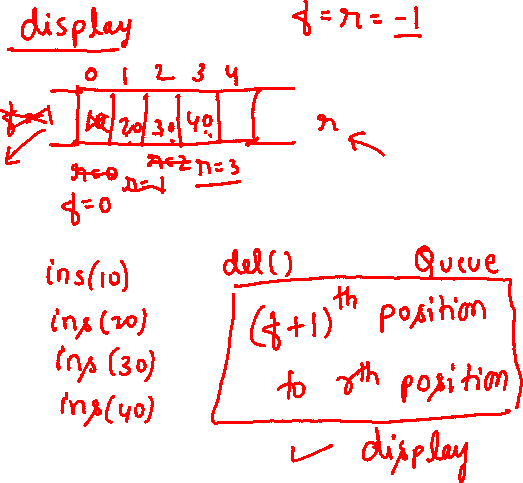 display
f = r = -1
0 1 2 3 4
20 30 40
r
r=0 r=1 r=2 r=3
f=0
ins(10)
ins(20)
ins(30)
ins(40)
del()
Queue
(f+1)th position
to rth position
display